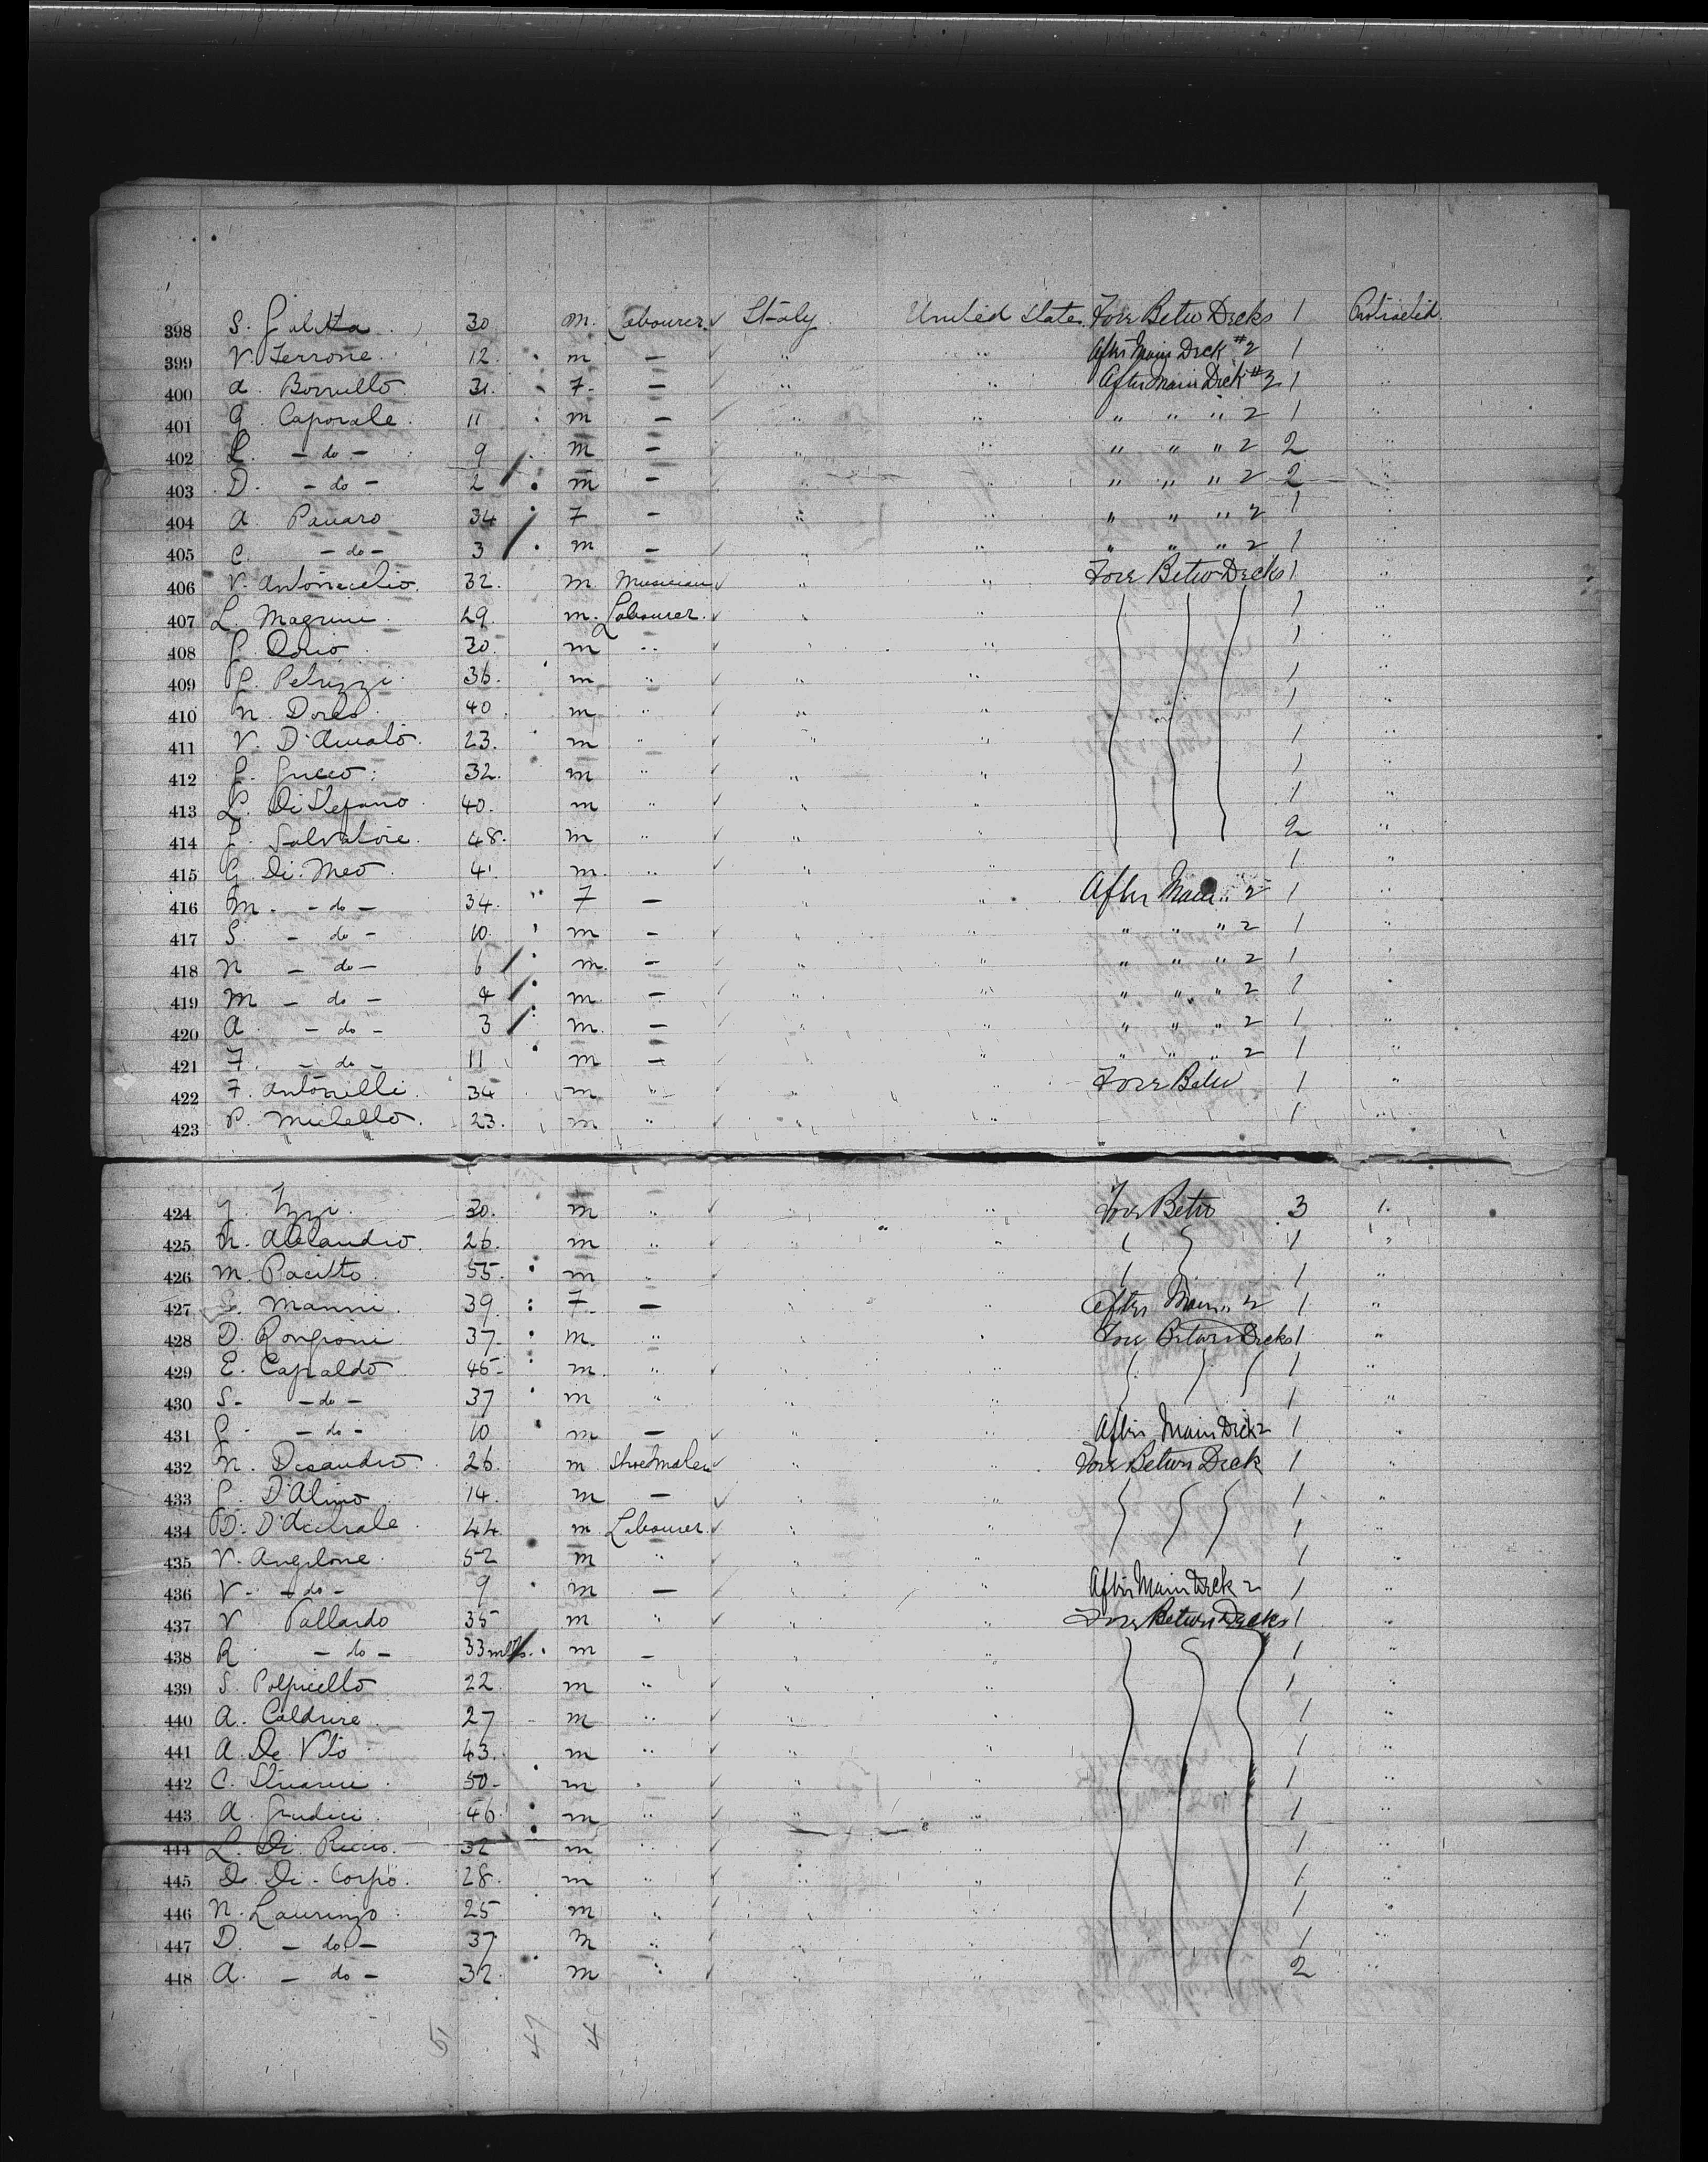 398 S. Galitta 30 m. Labourer Italy United States Fore Betw Decks 1 Protracted
399 V. Terrone 12 m — " " After Main Deck #2 1 "
400 A. Borrello 31 F — " " After Main Deck #2 1 "
401 G. Caporale 11 m — " " " " " 2 1 "
402 L. — do — 9 m — " " " " " 2 2 "
403 D. — do — 2 m — " " " " " 2 2 "
404 A. Panaro 34 F — " " " " " 2 1 "
405 C. — do — 3 m — " " " " " 2 1 "
406 V. Antonecchio 32 m Musician " " Fore Betw Decks 1 "
407 L. Magrini 29 m. Labourer " " 1 "
408 P. Dorio m " " " 1 "
409 P. Petrizzi 36 m " " " 1 "
410 N. Doreo 40 m " " " 1 "
411 V. D'Amato 23 m " " " 1 "
412 G. Greco 32 m " " " 1 "
413 L. Di Stefano 40 m " " " 1 "
414 L. Salvatore 48 m " " " 2 "
415 G. Di Meo 41 m " " " 1 "
416 M. — do — 34 F — " " After Main " 2 1 "
417 S. — do — 10 m — " " " " " 2 1 "
418 N — do — 6 m. — " " " " " 2 1 "
419 M — do — 4 m — " " " " " 2 1 "
420 A — do — 3 m. — " " " " " 2 1 "
421 F. — do — 11 m — " " " " " 2 1 "
422 F. Antonelli 34 m " " " Fore Betw 1 "
423 P. Michello 23 m " " " 1 "
424 Izzi 30 m " " " Fore Betw 3 1.
425 N. Alesandro 26 m " " " 1 "
426 M. Pacitto 55 m " " " 1 "
427 Manni 39 F — " " After Main " 2 1 "
428 D. Rongioni 37 m. " " " Fore Between Decks 1 "
429 E. Capaldo 45 m. " " " 1 "
430 S. — do — 37 m " " " 1 "
431 G — do — 10 m — " " After Main Deck 2 1 "
432 N. Desandro 26 m Shoemaker " " Fore Betwn Deck 1 "
433 P. D'Alino 14 m — " " 1 "
434 D. 44 m Labourer " " 1 "
435 V. Angelone 52 m " " " 1 "
436 V — do — 9 m — " " After Main Deck 2 1 "
437 V Pallardo 35 m " " " Fore Betwn Decks 1 "
438 R — do — 33 mths. m — " " 1 "
439 S. Polpicello 22 m " " " 1 "
440 A. Caldrire 27 m " " " 1 "
441 A. De Vito 43 m " " " 1 "
442 C. 50 m " " " 1 "
443 A. Giudici 46 m " " " 1 "
444 L. Di Riccio 32 m " " " 1 "
445 D. Di Corpo 28 m " " " 1 "
446 N. Laurinzo 25 m " " " 1 "
447 D. — do — 37 m " " " 1 "
448 A. — do — 32 m " " " 2 "
5 49 4